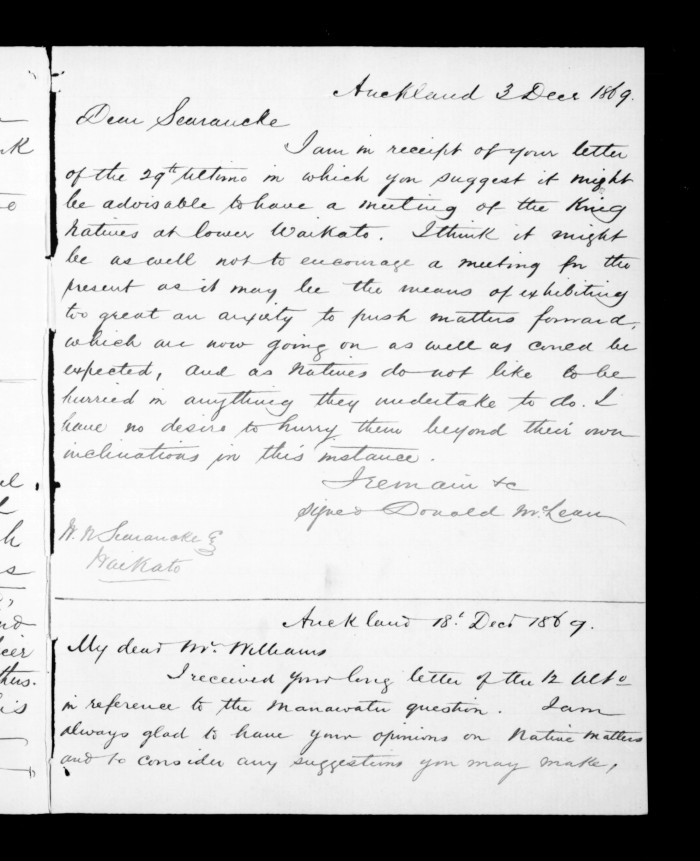 Auckland 3 Decr 1869.
Dear Searancke
I am in receipt of your letter
of the 29th Ultimo in which you suggest it might
be advisable to have a meeting of the King
natives at lower Waikato. I think it might
be as well not to encourage a meeting for the
present as it may be the means of exhibiting
too great an anxiety to push matters forward,
which are now going on as well as could be
expected, and as natives do not like to be
hurried in anything they undertake to do. I
have no desire to hurry them beyond their own
inclinations in this instance.
I remain &c
signed Donald McLean
W. N Searancke
Waikato
Auckland 18th Decr 1869.
My dear Mr. Williams
I received your long letter of the 12 Ulto
in reference to the Manawatu question. I am
always glad to have your opinions on Native matters
and to consider any suggestions you may make,